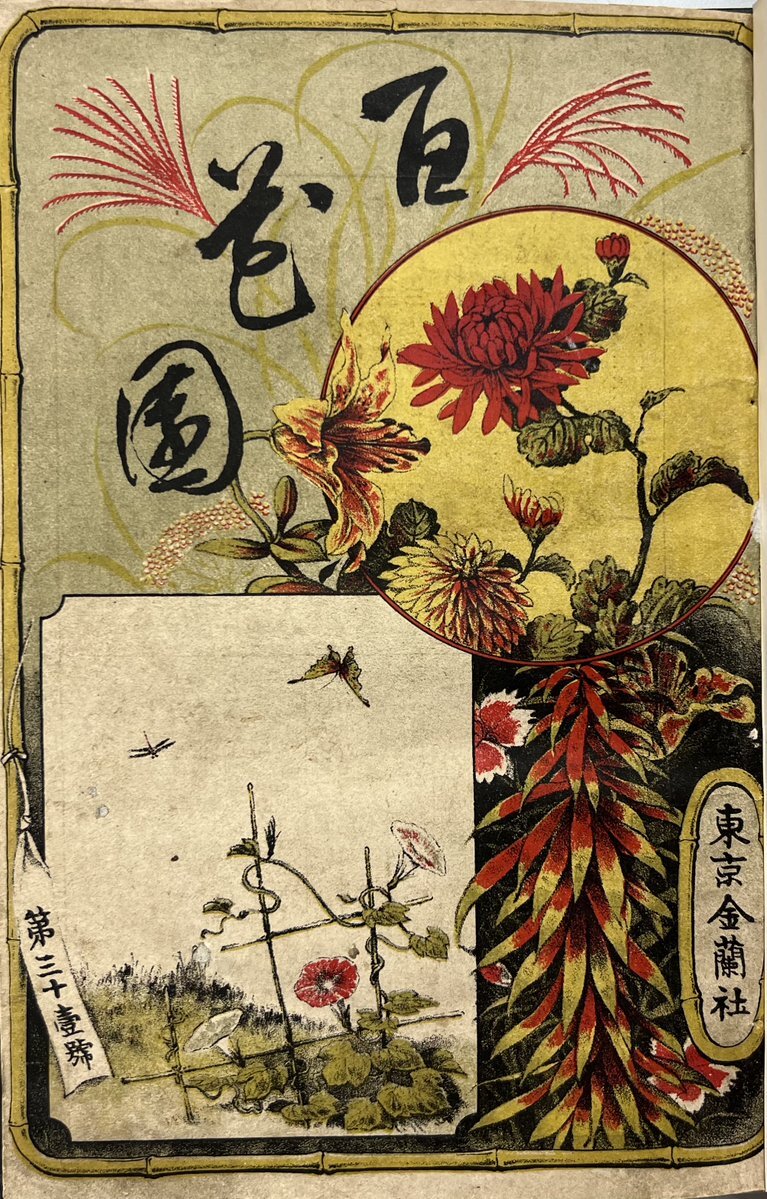 百花園
東京金蘭社
第三十壹號